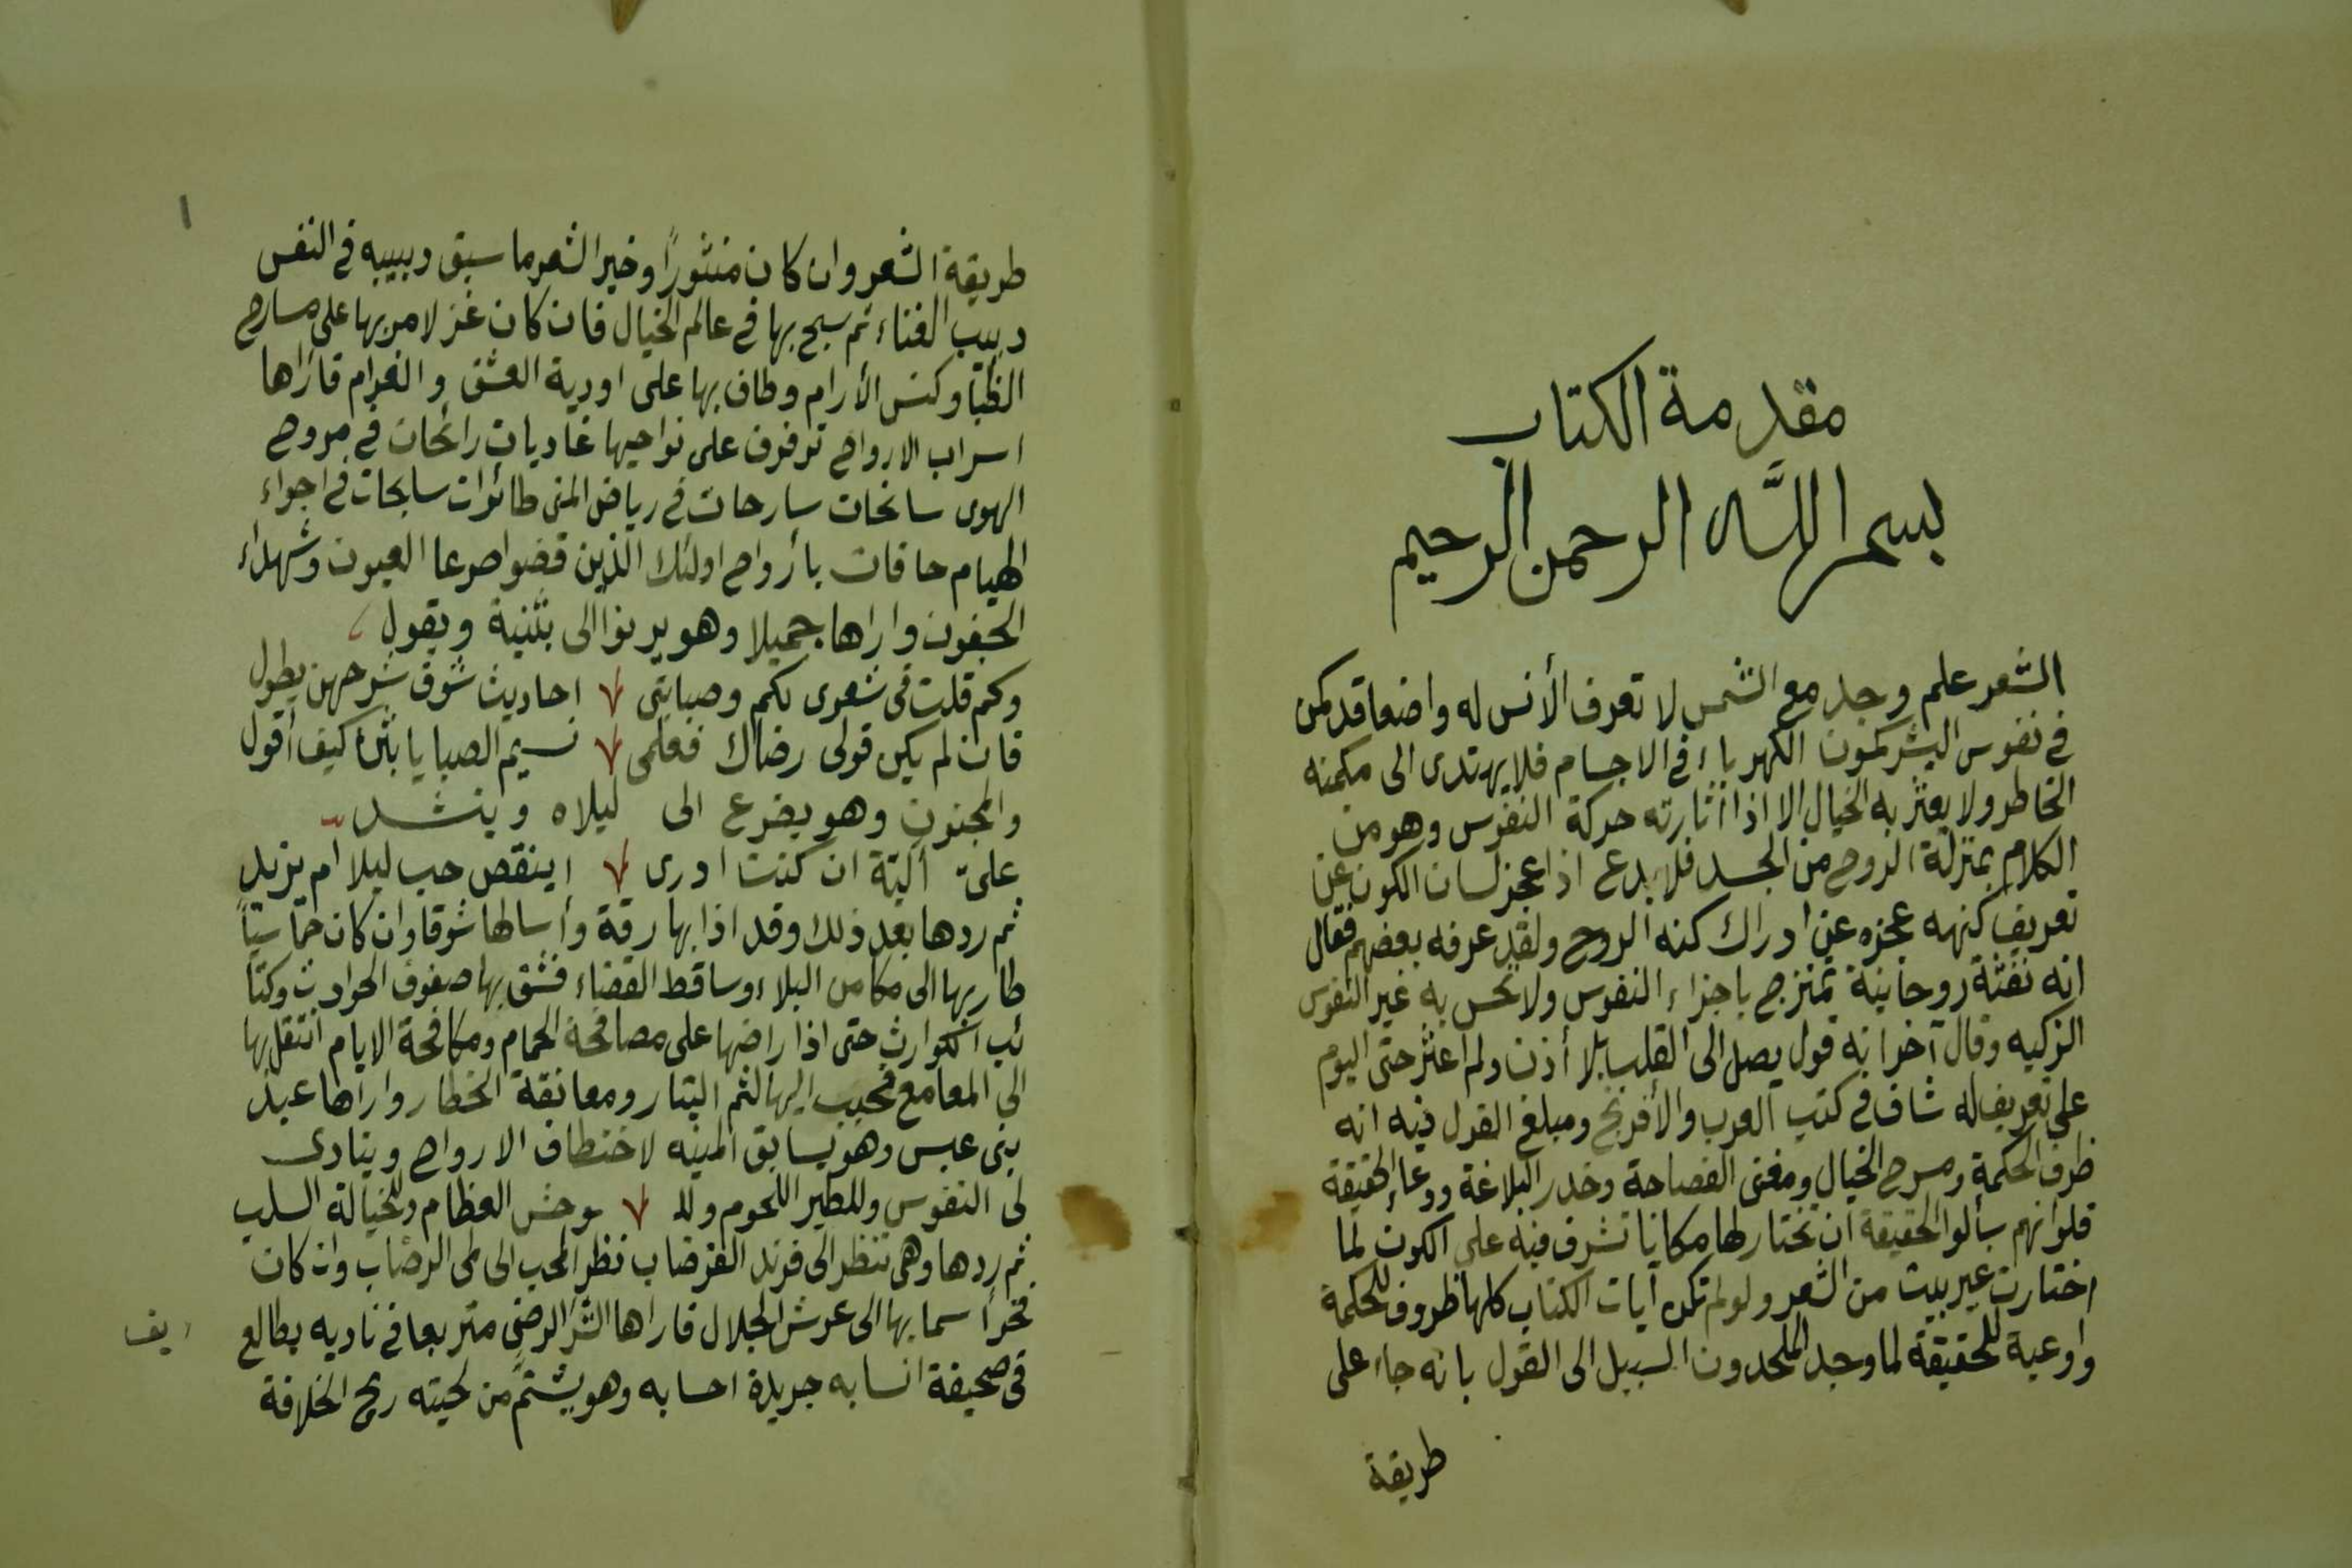 مقدمة الكتاب
بسم اللّه الرحمن الرحيم
الشعر علم وجد مع الشمس لا تعرف الأنس له واضعا قد كمن
في نفوس البشر كمون الكهرباء في الاجسام فلا يهتدى الى مكمنه
الخاطر ولا يعثر به الخيال الا اذا أثارته حركة النفوس وهو من
الكلام بمنزلة الروح من الجسد فلا بدع اذا عجز لسان الكون عن
تعريف كنهه عجزه عن ادراك كنه الروح ولقد عرفه بعضهم فقال
انه نفثة روحانية تمتزج باجزاء النفوس ولا تحس به غير النفوس
الزكيه وقال آخر انه قول يصل الى القلب بلا أذن ولم اعثر حتى اليوم
على تعريف له شاف في كتب العرب والأفرنج ومبلغ القول فيه انه
ظرف الحكمة ومسرح الخيال ومغنى الفصاحة وخدر البلاغة ووعاء الحقيقة
فلو انهم سألوا الحقيقة ان تختار لها مكانا تشرف فيه على الكون لما
اختارت غير بيت من الشعر ولو لم تكن آيات الكتاب كلها ظروف للحكمة
واوعية للحقيقة لما وجد الملحدون السبيل الى القول بانه جاء على
طريقة
طريقة الشعر وان كان منثوراً وخير الشعر ما سبق دبيبه في النفس
دبيب الغناء ثم سبح بها في عالم الخيال فان كان غزلا مر بها على مسارح
الظبا وكنس الأرام وطاف بها على اودية العشق والغرام فأراها
اسراب الارواح ترفرف على نواحيها غاديات رائحات في مروح
الهوى سانحات سارحات في رياض المنى طائرات سابحات في اجواء
الهيام حافات بأرواح اولئك الذين قضوا صرعا العيون وشهداء
الجفون واراها جميلا وهو يرنوا الى بثنية ويقول
وكم قلت في شعرى بكم وصبابتى احاديث شوق شرحهن يطول
فان لم يكن قولى رضاك فعلمى نسيم الصبا يا بثن كيف أقول
والمجنون وهو يضرع الى ليلاه وينشد
علىّ ألية ان كنت ادرى اينقص حب ليلا ام يزيد
ثم ردها بعد ذلك وقد اذابها رقة وأسالها شوقا وان كان حماسيّاً
طار بها الى مكامن البلاء وساقط القضاء فشق بها صفوف الحوادث وكتا
ئب الكوارث حتى اذا راضها على مصافحة الحمام ومكافحة الايام انتقل بها
الى المعامع فحبب اليها لثم البتار ومعانقة الخطار واراها عبد
بنى عبس وهو يسابق المنيه لاختطاف الارواح وينادى
لى النفوس وللطير اللحوم ولل وحش العظام وللخيالة السلب
ثم ردها وهى تنظر الى فرند القرضاب نظر المحب الى لمى الرضاب وان كان
فخراً سما بها الى عرش الجلال فاراها الشر الرضى متربعا في ناديه يطالع
في صحيفة انسابه جريدة احسابه وهو يشتم من لحيته ريح الخلافة
يف